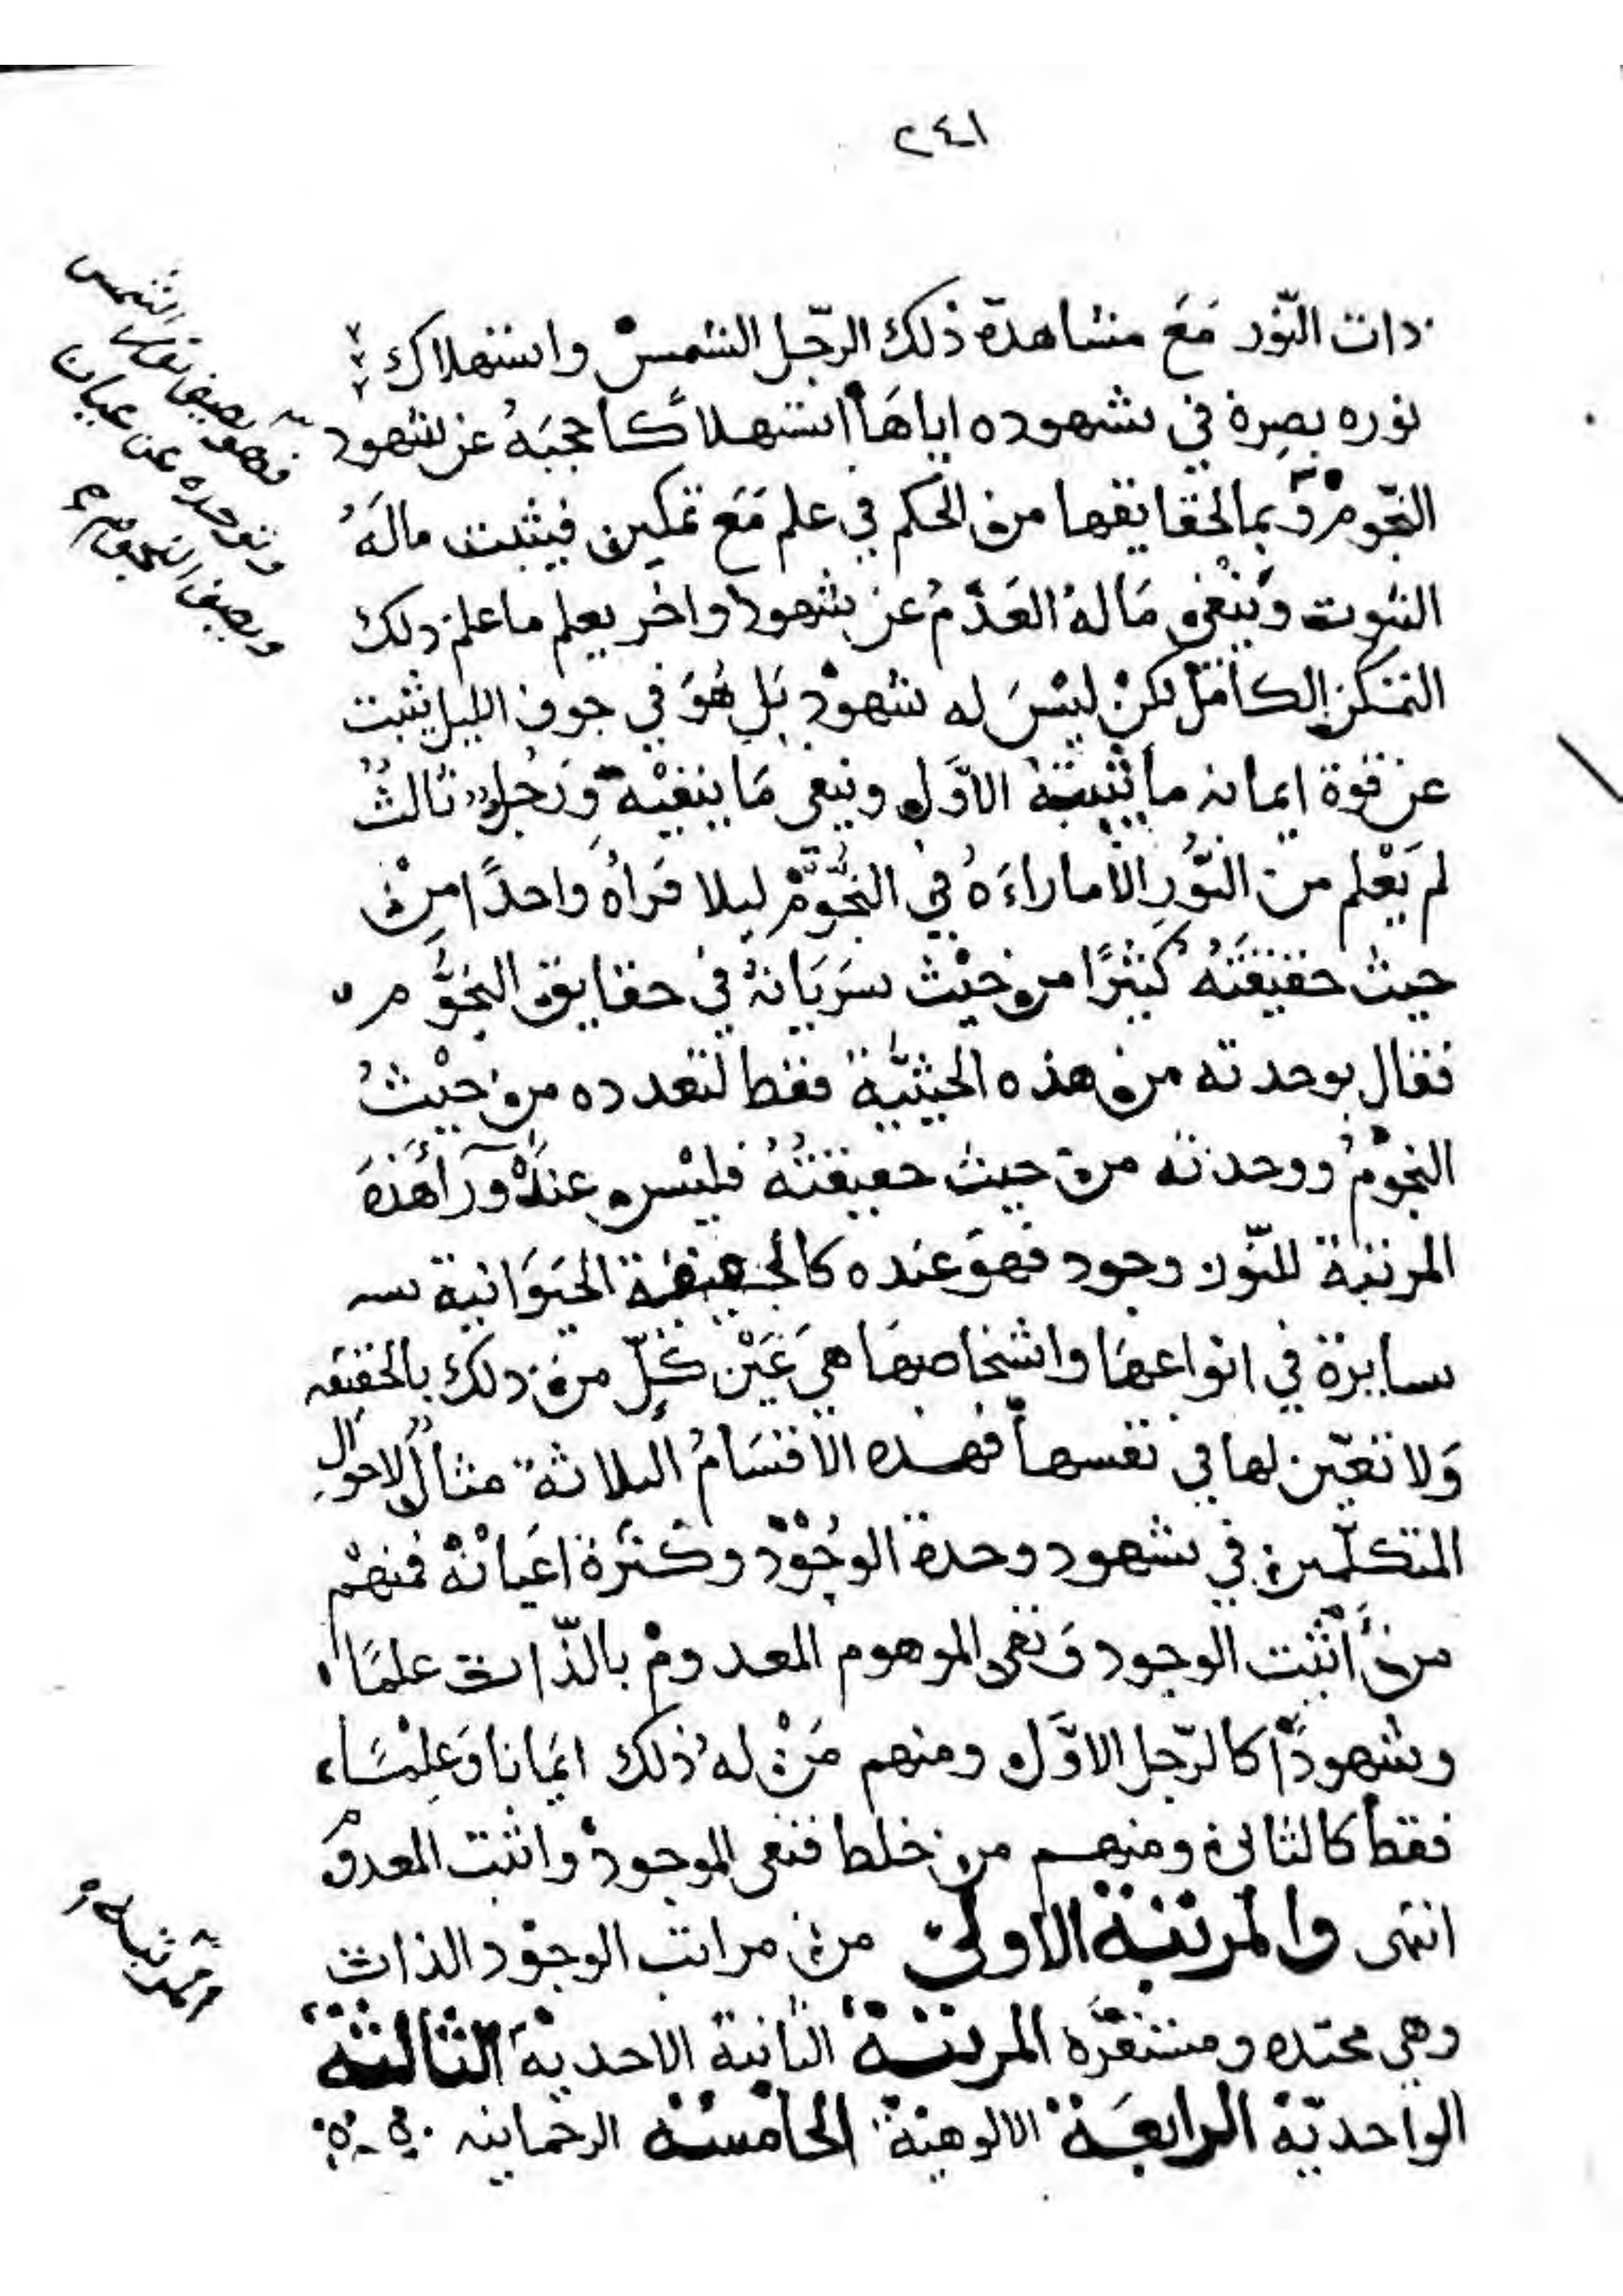 ٢٤١
ذات النّور مَعَ مشاهدة ذلك الرّجل الشمسْ واستهلاك
نوره بصره في شهوده اياهَا استهلاكًا حجبَهُ عن شهود
النّجوْم وبما لحقايقها من الحكم في علم مَعَ تمكين فيثبت مالَهُ
الثبوت وَينْفي مَا لهُ العَدَمُ عن شهود واخر يعلم ما علم ذلك
المتمكن الكامل لكنْ ليْسَ له شهودْ بَل هُوَ في جوف الليل يثبت
عن قوة ايمانه ما يثبتهُ الاوَّل وينفي مَا ينفيْه وَرَجُل ثالثُ
لم يَعْلم من النّورِ الا ما راءَهُ في النجُوْم ليلا فرَاهُ واحدًا مِنْ
حيث حقيقَتهُ كثيْرًا من حيْث سَرَيَانهُ في حقايق النجُوْم
فقال بوحدته من هذه الحيثيّة فقط لتعدده من حيْثُ
النجوْمُ ووحدته من حيث حقيقتهُ فليْس عندَهْ ورآءَ هذهَ
المرتبة للنّور وجود فهوَ عنده كالحقيقة الحيَوَانية
سايرة في انواعهَا واشخاصهَا هي عَيْن كلّ من ذلك بالحقيقه
وَلا تعيّن لها في نفسها فهذه الاقسَامُ الثلاثة مثال لاحوال
المتكلّمين في شهود وحدة الوجُوْد وكثرة اعيَانهْ فمنهمْ
من أثبت الوجود وَنفى الموهوم المعدومْ بالذّات علمًا
وشهودًا كالرّجل الاوّل ومنهم مَنْ له ذلك ايمَانا وَعلمًا
فقط كالثاني ومنهم من خلط فنفى الموجودْ واثبت المعدوم
انتهى والمرتبة الاولى من مراتب الوجوْد الذات
وهي محتده ومستقرّه المرتبة الثانية الاحديّة الثالثة
الواحديّة الرابعَة الالوهيّة الخامسة الرحمانيه
الشمس
فهو يصف نور
وتوحده عن عيان
ويصف النجوم